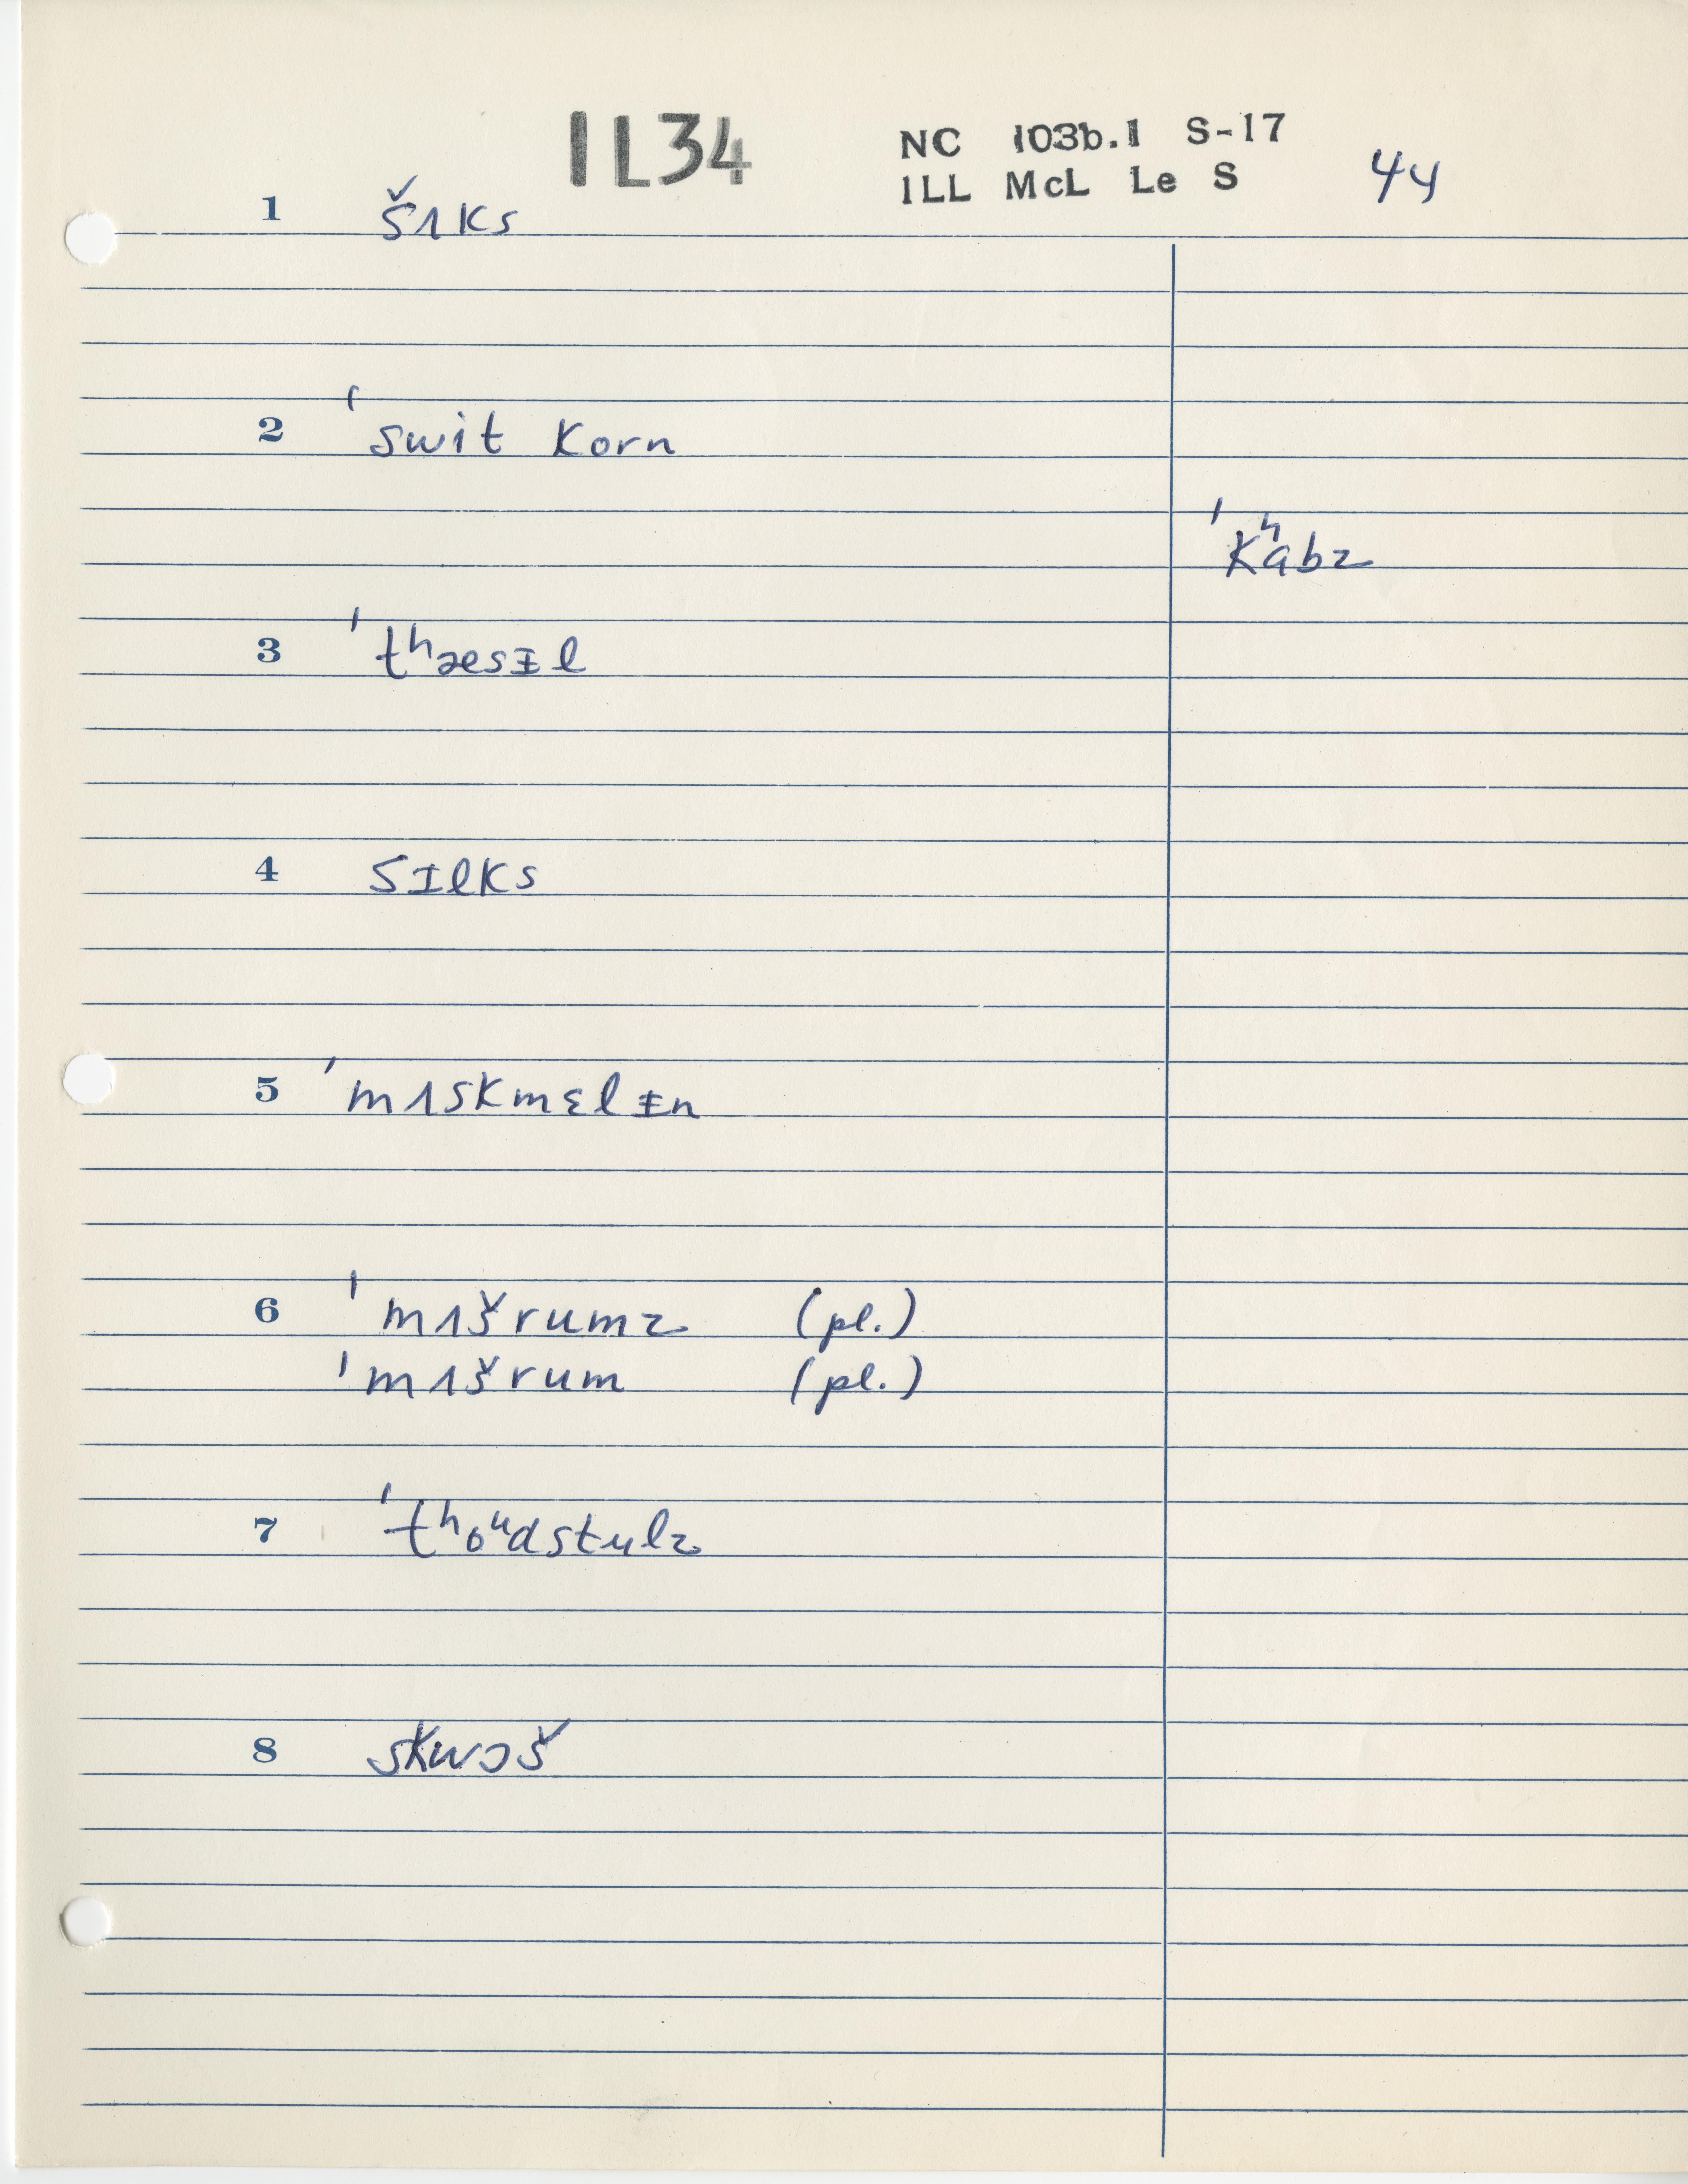 IL34
NC 103b.1 S-17
ILL McL Le S
44
1 šʌks
2 ˈswit korn
ˈkʰabz
3 ˈtʰæsɪl
4 sɪlks
5 ˈmʌskmɛlᵻn
6 ˈmʌšrumz (pl.)
ˈmʌšrum (pl.)
7 ˈtʰoᵘdstulz
8 skwɔš